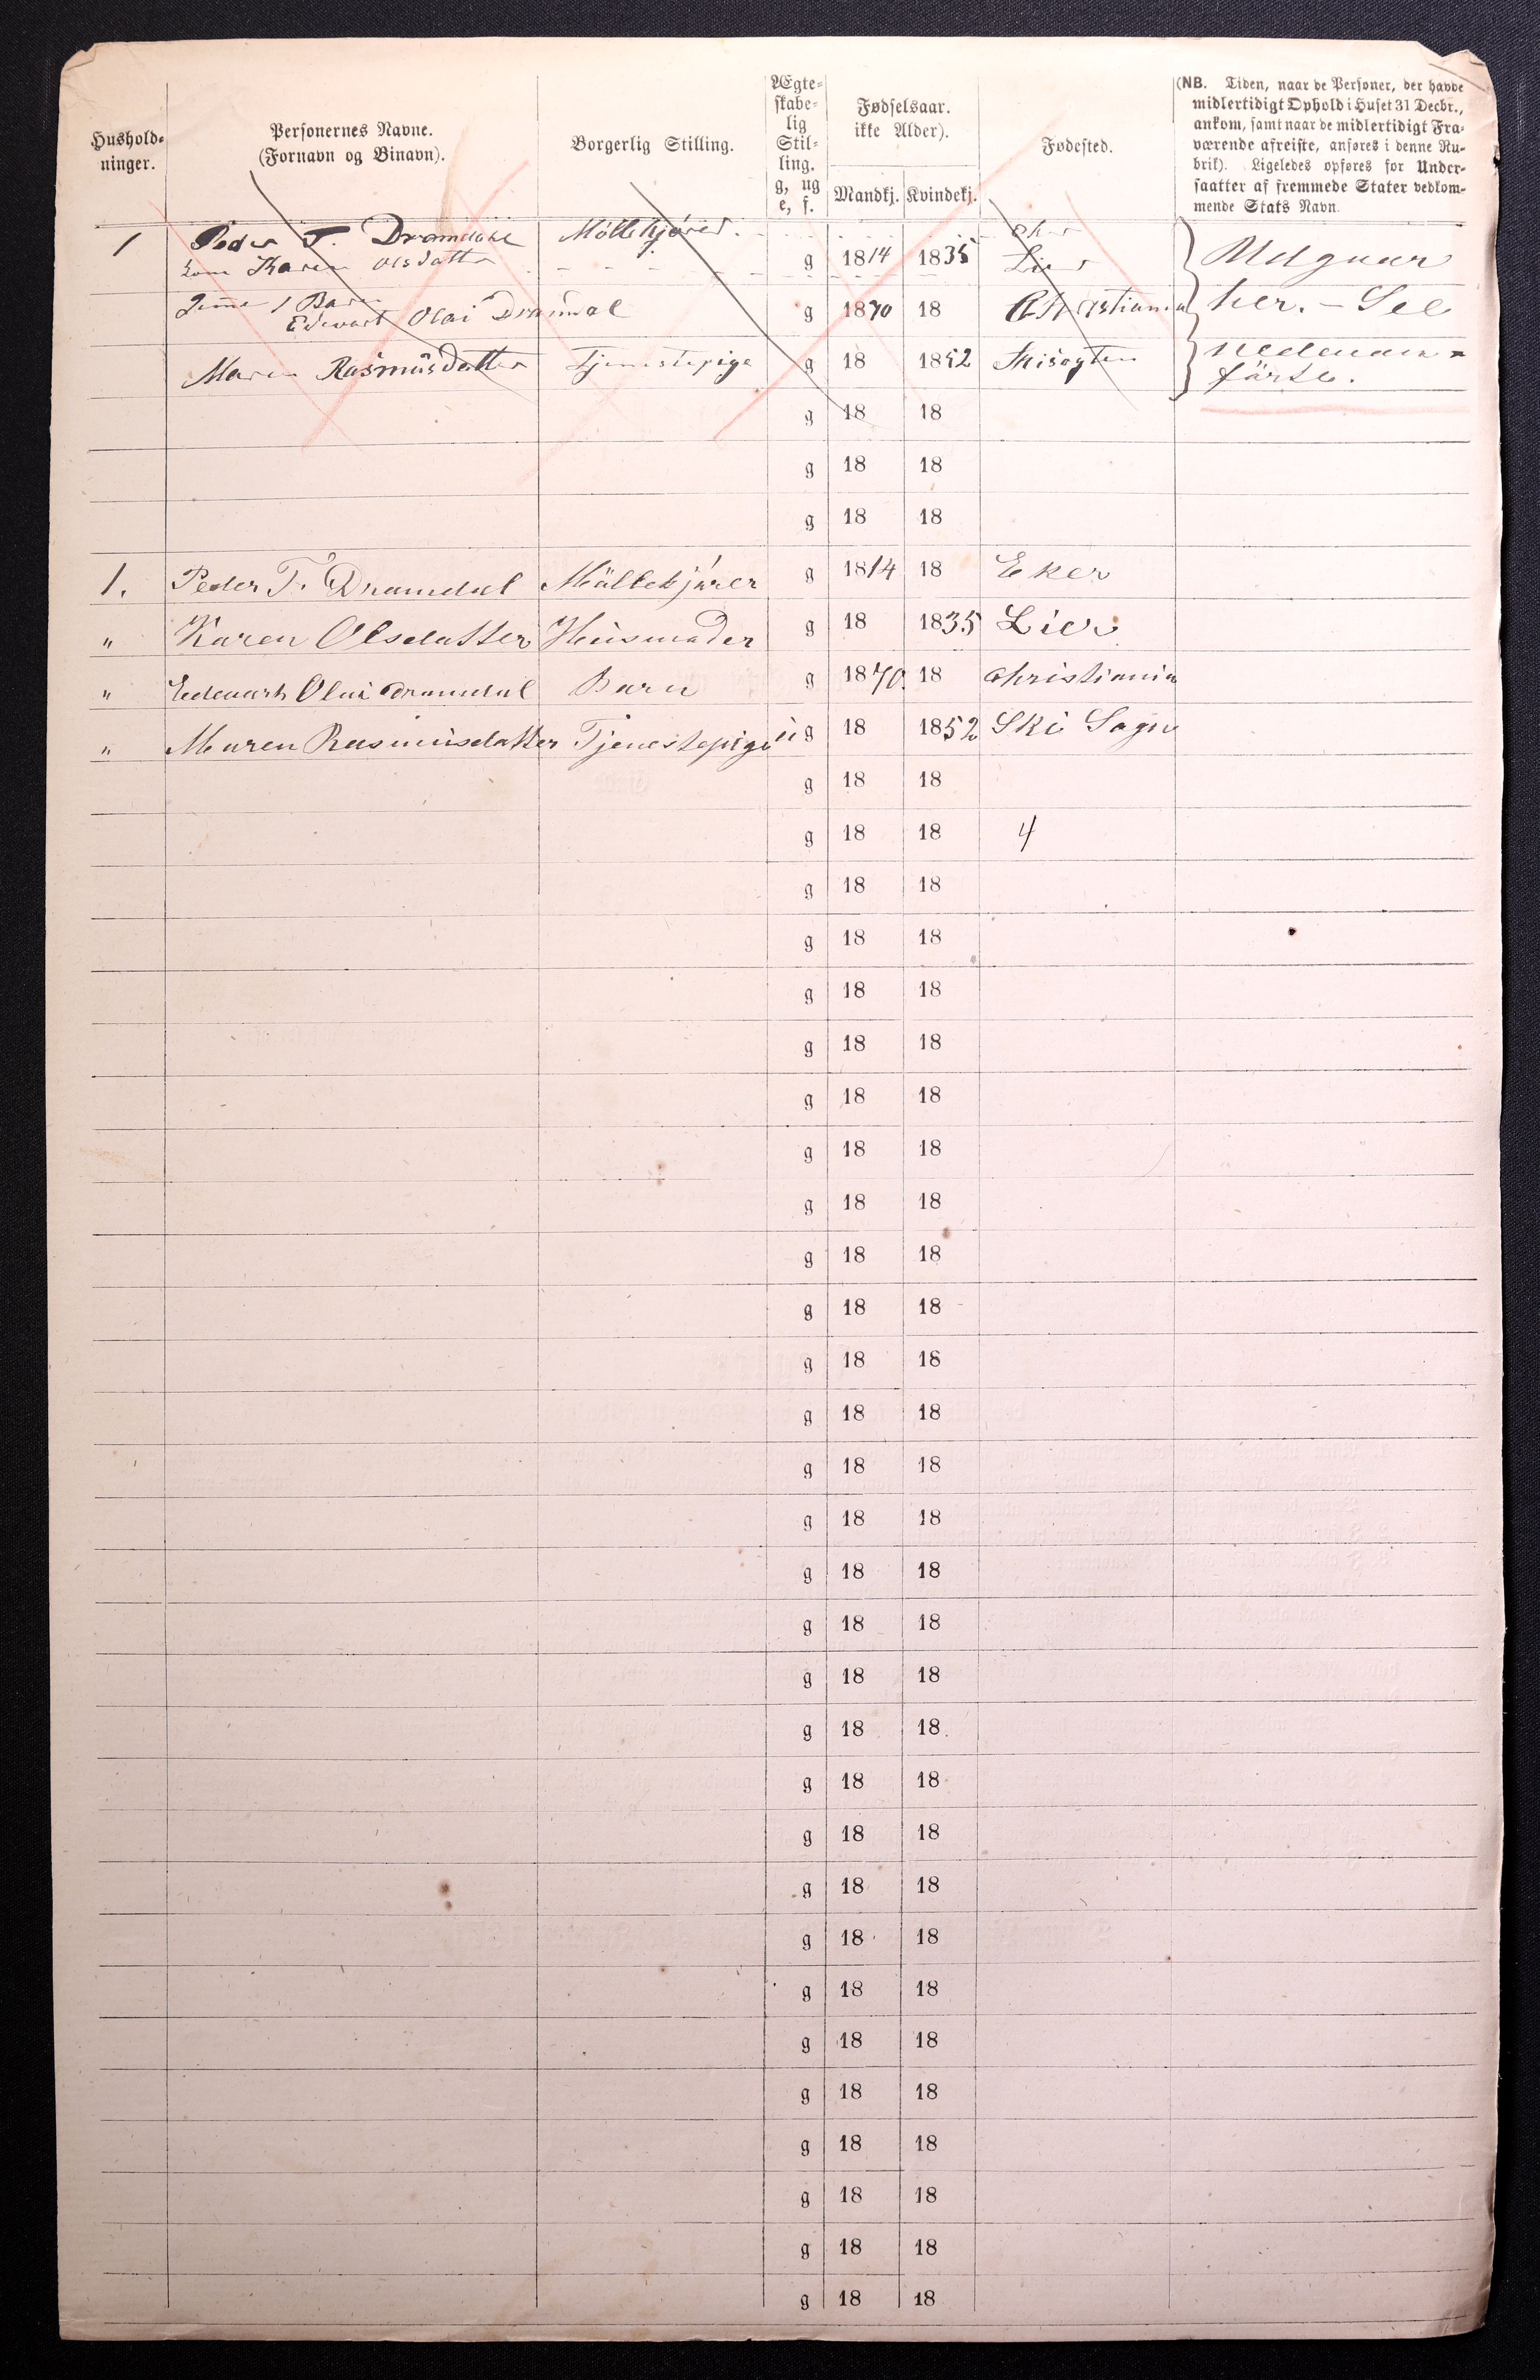 Hushold-
ninger.
Personernes Navne.
(Fornavn og Binavn).
Borgerlig Stilling.
Ægte-
skabe-
lig
Stil-
ling.
g, ug
e, f.
Fødselsaar.
ikke Alder).
Mandkj. Kvindekj.
Fødested.
(NB. Tiden, naar de Personer, der havde
midlertidigt Ophold i Huset 31 Decbr.,
ankom, samt naar de midlertidigt Fra-
værende afreiste, anføres i denne Ru-
brik). Ligeledes opføres for Under-
saatter af fremmede Stater vedkom-
mende Stats Navn.
1 Peder T. Dramdahl Møllekjører
Kone Karen Olsdatter g 1814 1835 Lier
1 Barn
Edevart Olai Dramdal g 1870 18 Christiania
Maren Rasmusdatter Tjenestepige g 18 1852
Udgaar
her. – See
nedenan-
førte.
g 18 18
g 18 18
g 18 18
1. Peder T. Dramdal Møllekjører g 1814 18 Eker
" Karen Olsdatter Husmoder g 18 1835 Lier
" Edevart Olai Dramdal Barn g 1870. 18 Christiania
" Maren Rasmusdatter Tjenestepige ug 18 1852 Ski Sogn
g 18 18
g 18 18 4
g 18 18
g 18 18
g 18 18
g 18 18
g 18 18
g 18 18
g 18 18
g 18 18
g 18 18
g 18 18
g 18 18
g 18 18
g 18 18
g 18 18
g 18 18
g 18 18
g 18 18
g 18 18
g 18 18
g 18 18
g 18 18
g 18 18
g 18 18
g 18 18
g 18 18
g 18 18
g 18 18
g 18 18